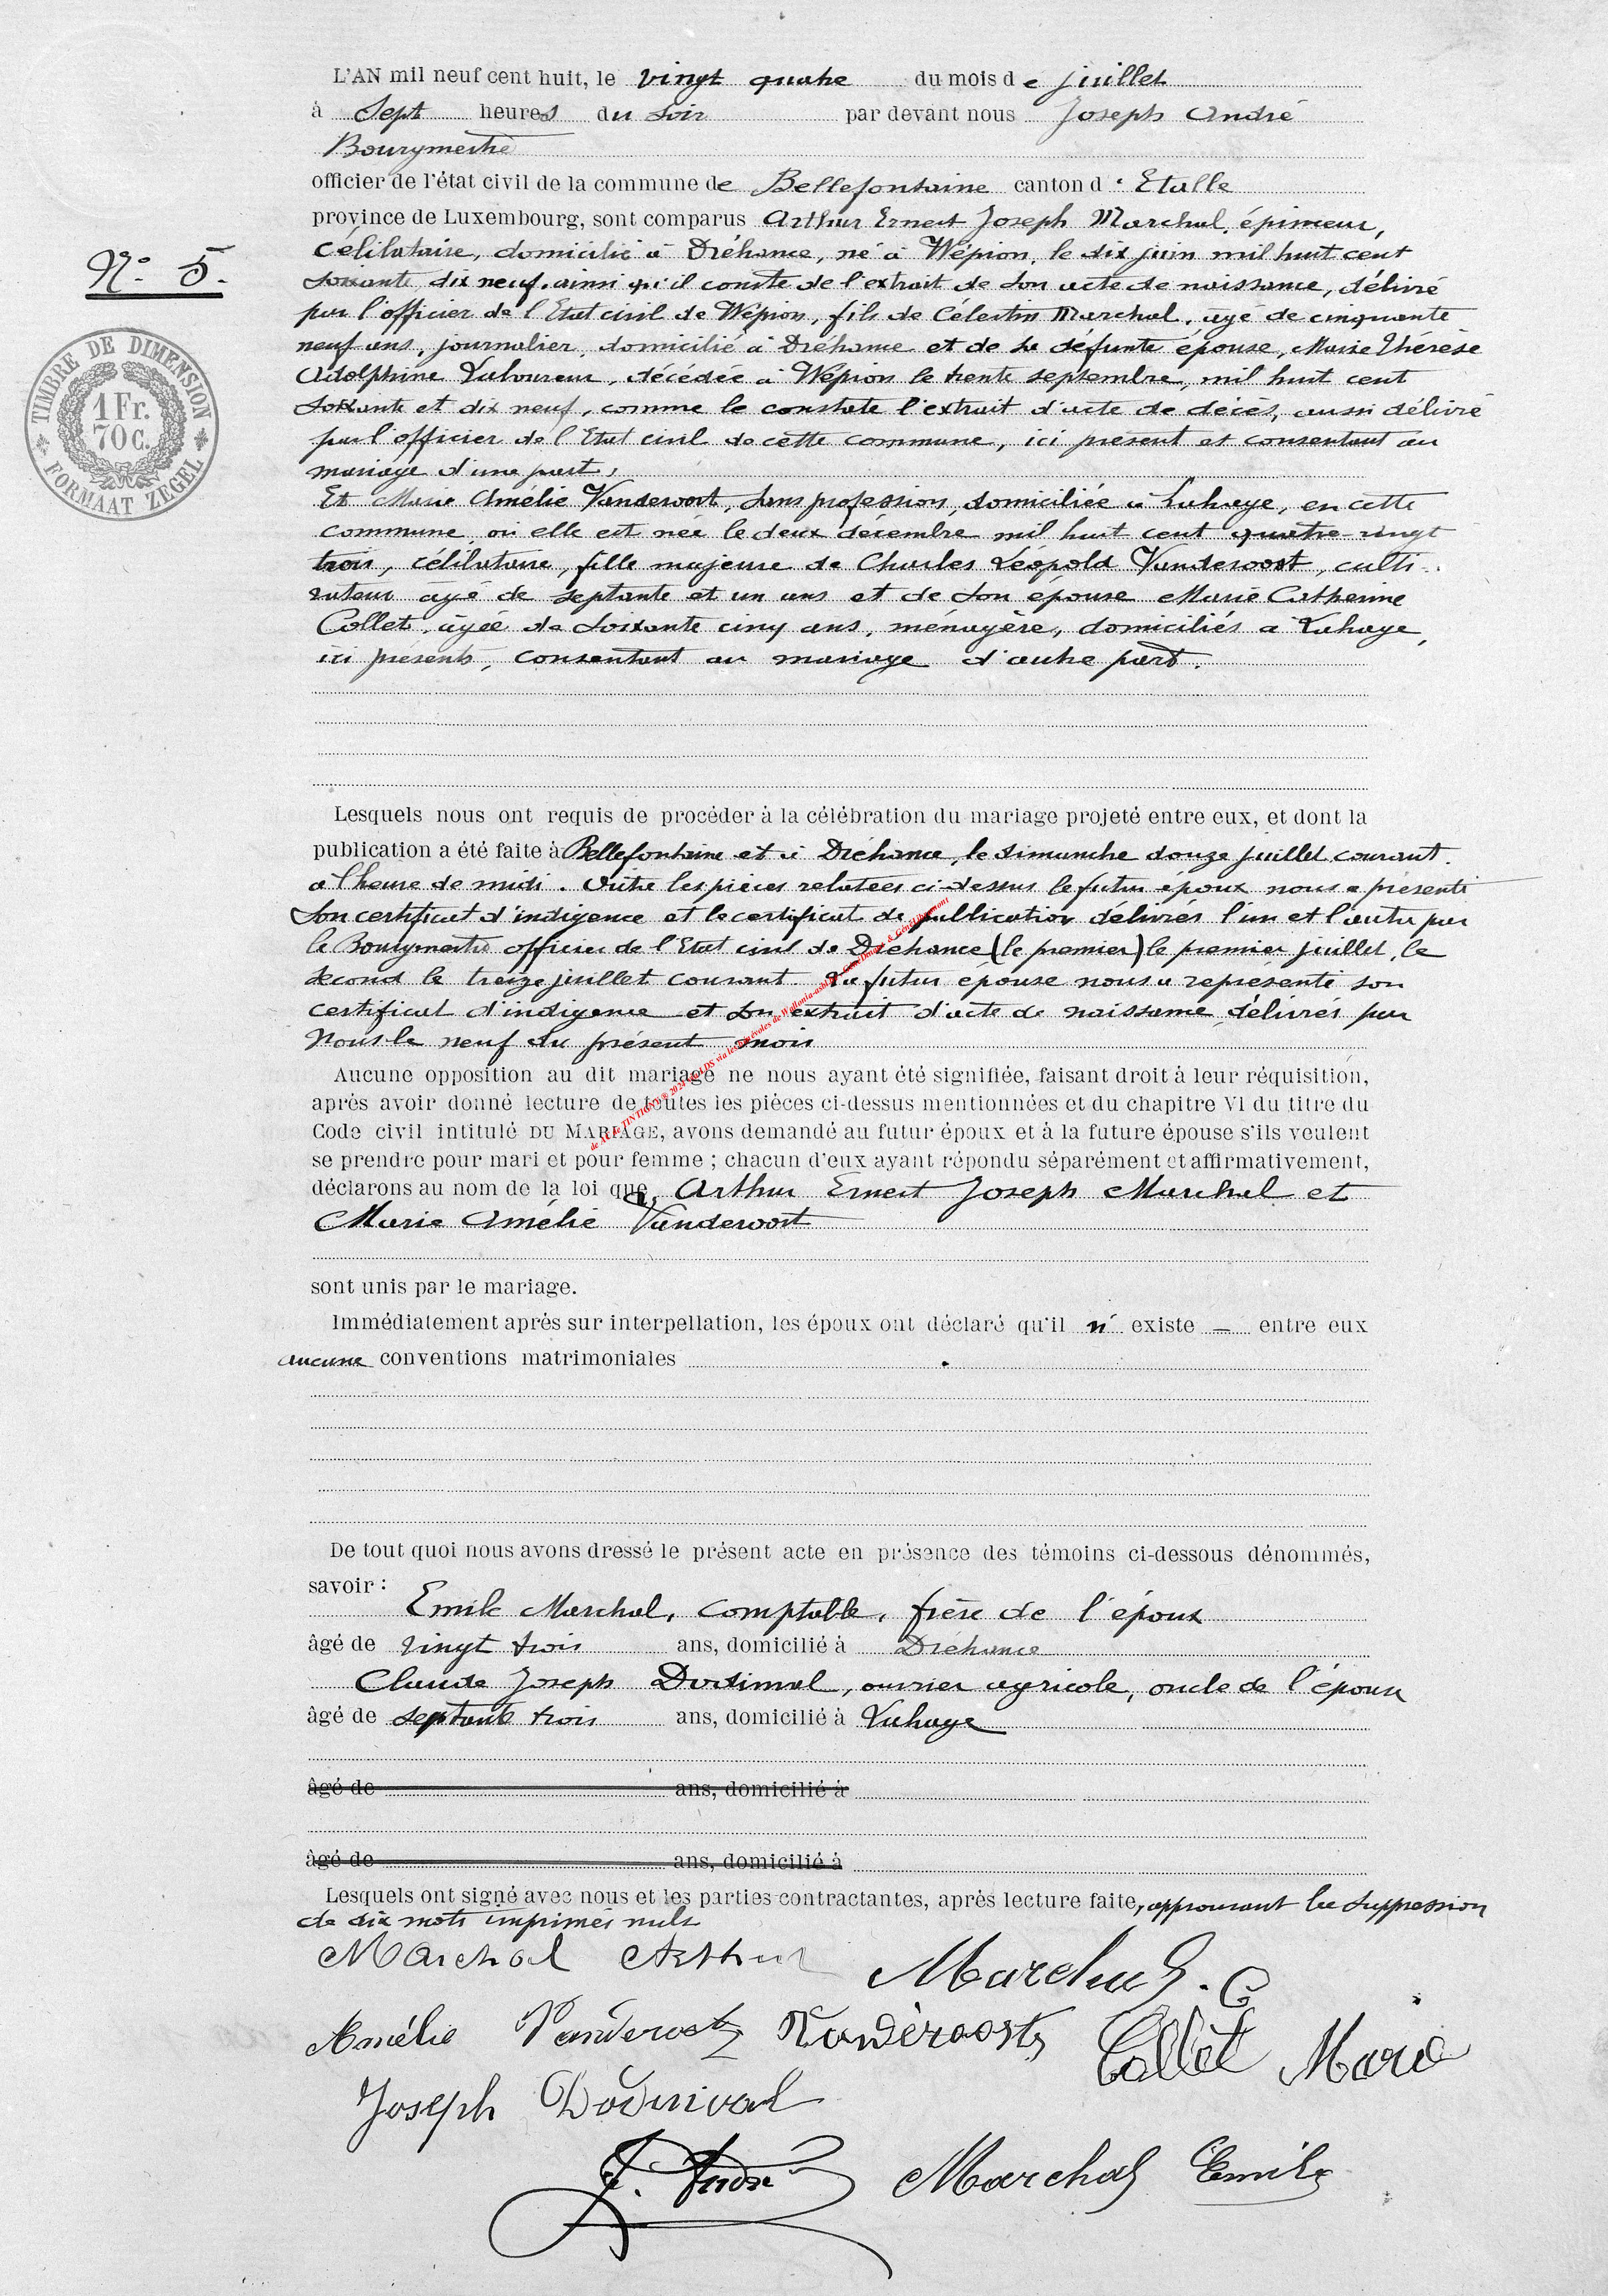 L'AN mil neuf cent huit, le vingt quatre du mois de juillet
à Sept heures du soir par devant nous Joseph André
Bourgmestre
officier de l'état civil de la commune de Bellefontaine canton d'Etalle
province de Luxembourg, sont comparus Arthur Ernest Joseph Marchal, épimeur,
célibataire, domicilié à Dréhance, né à Wépion, le dix juin mil huit cent
soixante dix neuf, ainsi qu'il conste de l'extrait de son acte de naissance, délivré
par l'officier de l'Etat civil de Wépion, fils de Célestin Marchal, âgé de cinquante
neuf ans, journalier, domicilié à Dréhance et de sa défunte épouse, Marie Thérèse
Adolphine Laloureur, décédée à Wépion le trente septembre, mil huit cent
soixante et dix neuf, comme le constate l'extrait d'acte de décès, aussi délivré
par l'officier de l'Etat civil de cette commune, ici présent et consentant au
mariage d'une part,
N° 5.
TIMBRE DE DIMENSION
1 Fr.
70 c.
FORMAAT ZEGEL
Et Marie Amélie Vandervort, sans profession, domiciliée à Lahage, en cette
commune, où elle est née le deux décembre mil huit cent quatre-vingt
trois, célibataire, fille majeure de Charles Léopold Vandervoort, culti-
vateur âgé de septante et un ans et de son épouse Marie Catherine
Collet, âgée de soixante cinq ans, ménagère, domiciliés à Lahage,
ici présents, consentant au mariage d'autre part.
Lesquels nous ont requis de procéder à la célébration du mariage projeté entre eux, et dont la
publication a été faite à Bellefontaine et à Dréhance, le dimanche douze juillet courant.
à l'heure de midi. Outre les pièces relatées ci-dessus le futur époux nous a présenté
son certificat d'indigence et le certificat de publication délivrés l'un et l'autre par
le Bourgmestre officier de l'Etat civil de Dréhance (le premier) le premier juillet, le
second le treize juillet courant. La futur épouse nous a représenté son
certificat d'indigence et son extrait d'acte de naissance, délivrés par
Nous le neuf du présent mois
Aucune opposition au dit mariage ne nous ayant été signifiée, faisant droit à leur réquisition,
après avoir donné lecture de toutes les pièces ci-dessus mentionnées et du chapitre VI du titre du
Code civil intitulé DU MARIAGE, avons demandé au futur époux et à la future épouse s'ils veulent
se prendre pour mari et pour femme ; chacun d'eux ayant répondu séparément et affirmativement,
déclarons au nom de la loi que, Arthur Ernest Joseph Marchal et
Marie Amélie Vandervoort
sont unis par le mariage.
Immédiatement après sur interpellation, les époux ont déclaré qu'il n' existe — entre eux
aucune conventions matrimoniales
De tout quoi nous avons dressé le présent acte en présence des témoins ci-dessous dénommés,
savoir :
Emile Marchal, comptable, frère de l'époux
âgé de vingt trois ans, domicilié à Dréhance
Claude Joseph Dodinval, ouvrier agricole, oncle de l'épouse
âgé de septante trois ans, domicilié à Lahage
âgé de ans, domicilié à
âgé de ans, domicilié à
Lesquels ont signé avec nous et les parties contractantes, après lecture faite, approuvant la suppression
de dix mots imprimés nuls
Marchal Arthur Marchal. C
Amélie Vandervoort Vandervoort Collet Marie
Joseph Dodinval
J. André Marchal Emile